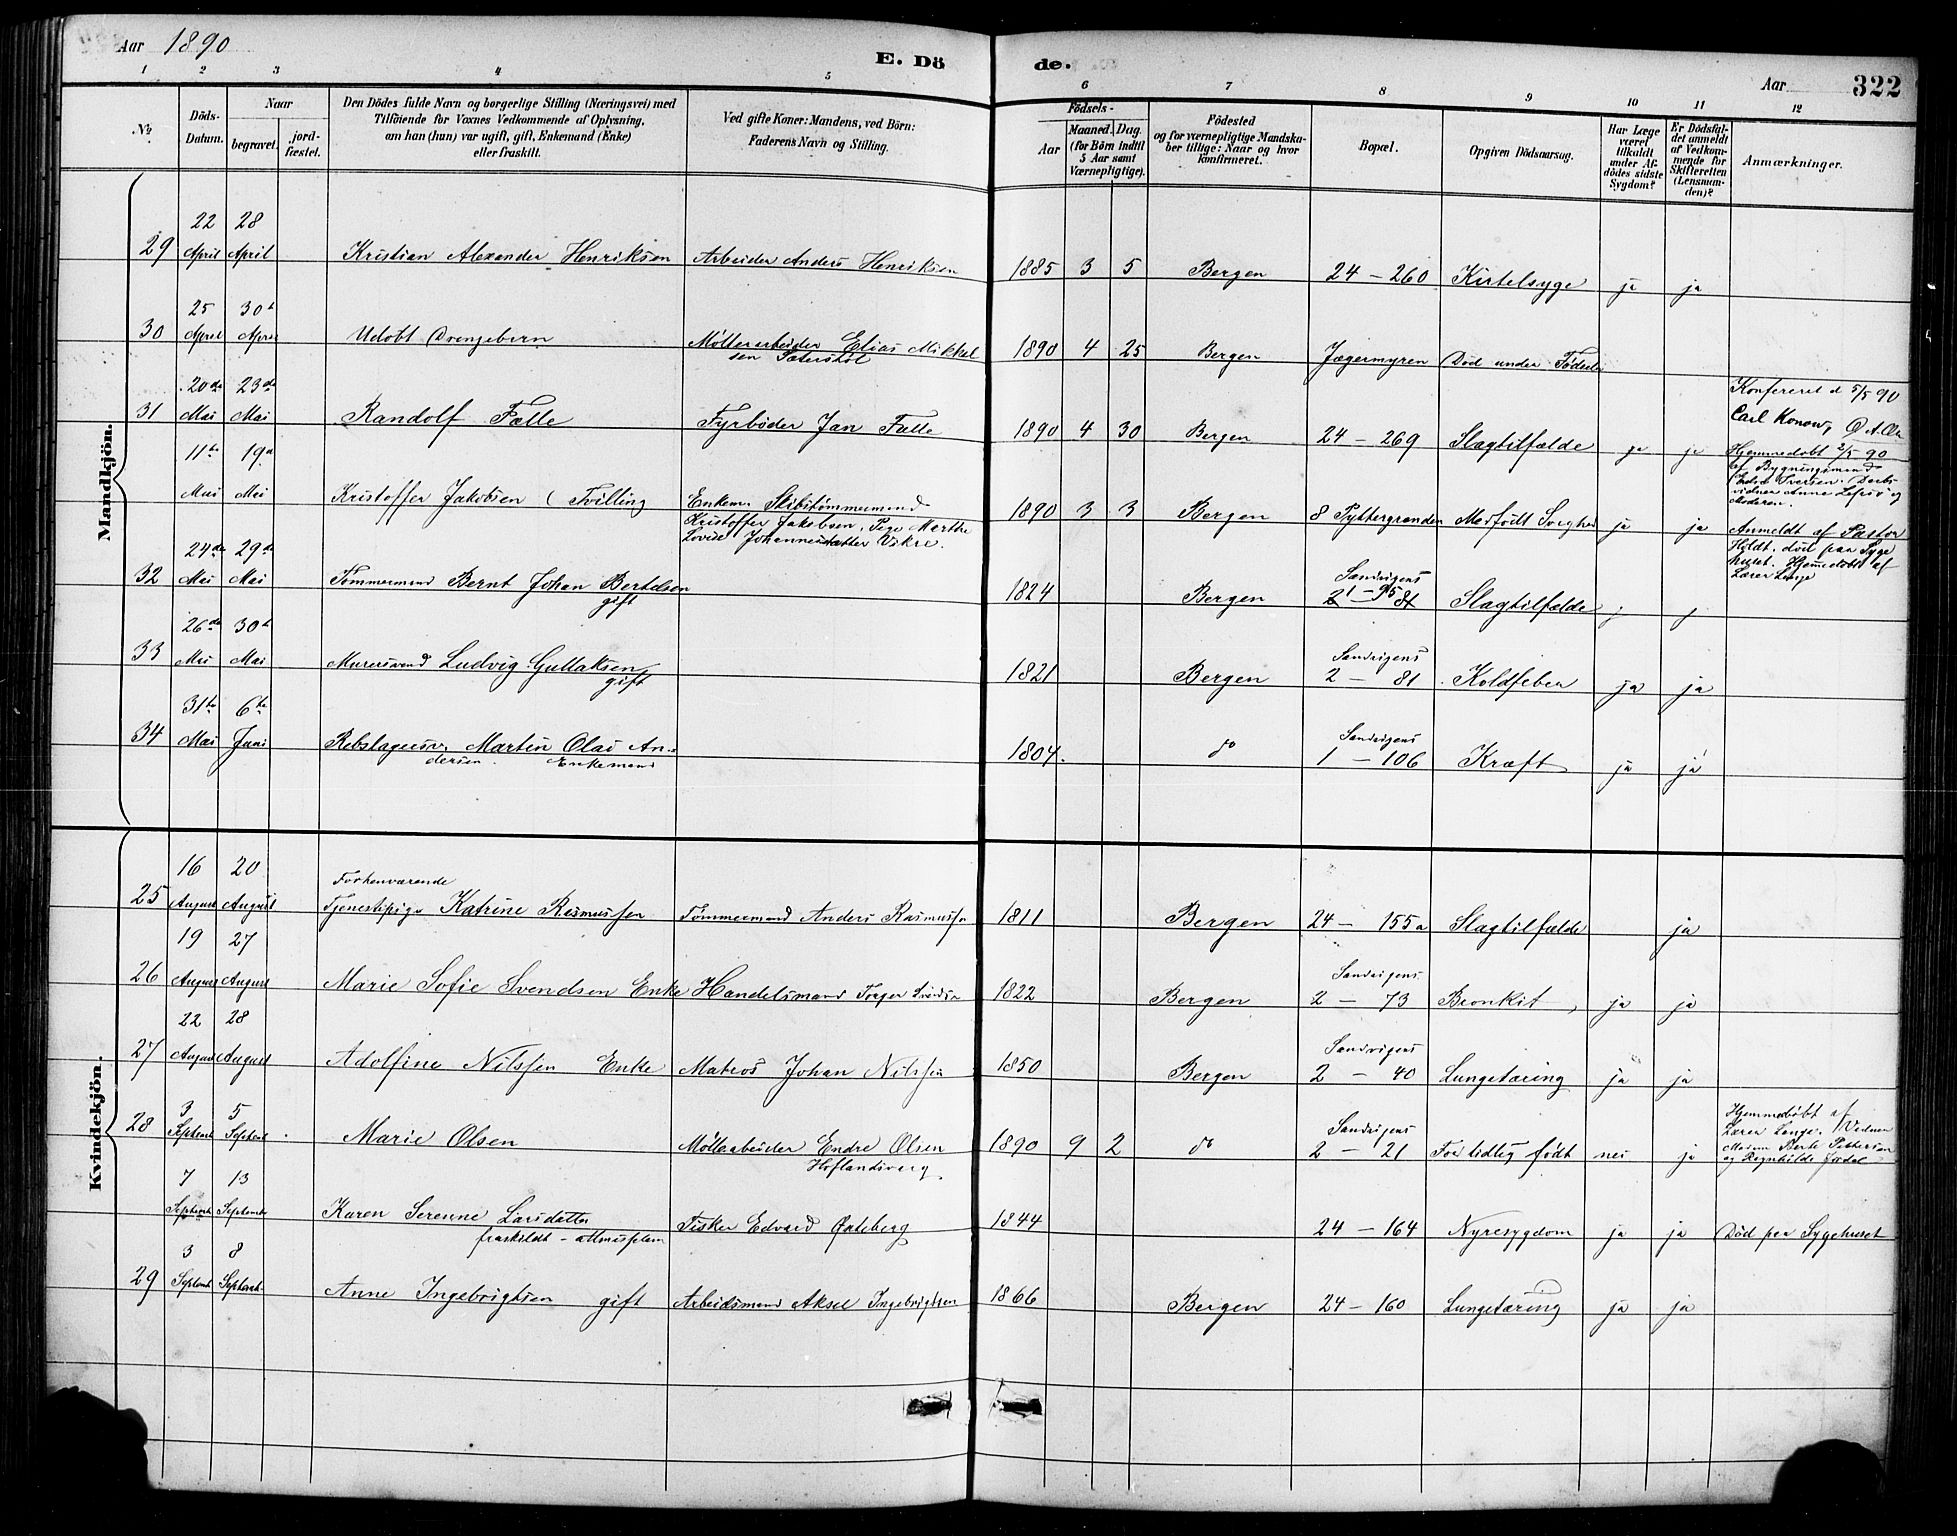 Aar 1890
E. Dö
de.
Aar
322
1 2 3 4 5 6 7 8 9 10 11 12
No
Döds-
Datum.
Naar
begravet.
jord-
fæstet.
Den Dödes fulde Navn og borgerlige Stilling (Næringsvei) med
Tilföiende for Voxnes Vedkommende af Oplysning,
om han (hun) var ugift, gift, Enkemand (Enke)
eller fraskilt.
Ved gifte Koner: Mandens, ved Börn:
Faderens Navn og Stilling.
Födsels-
Aar
Maaned. Dag.
(for Börn indtil
5 Aar samt
Værnepligtige).
Födested
og for værnepligtige Mandska-
ber tillige: Naar og hvor
konfirmeret.
Bopæl.
Opgiven Dödsaarsag.
Har Læge
været
tilkaldt
under Af-
dödes sidste
Sygdom?
Er Dödsfal-
det anmeldt
af Vedkom-
mende for
Skifteretten
(Lensman-
den)?
Anmærkninger.
Mandkjön.
22 28
29 April April Kristian Alexander Henriksen Arbeider Anders Henriksen 1885 3 5 Bergen 24 - 260 Kirtelsyge ja ja
25 30t
30 April April Udöbt Drengebarn Møllerarbeider Elias Mikkel 1890 4 25 Bergen Jægermyren Død under Fødselen
sen
20de 23de
31 Mai Mai Randolf Falle Fyrbøder Jan Falle 1890 4 30 Bergen 24 - 269 Slagtilfælde ja ja
Konfereret d 5/5 90
Carl Konow,
Hjemmedøbt 2/5 90
af Bygningsmand
Iversen.
Anne
Moderen.
11te 19d
Mai Mai Kristoffer Jakobsen (Tvilling) Enkem. Skibstømmermand 1890 3 3 Bergen 8 Pyttergrenden Medfødt Svaghed ja ja
Kristoffer Jakobsen, Pige Merthe
Lovise Johannesdatter Vikre.
Anmeldt af Pastor
Holdt. død paa Syge
huset. Hjemmedøbt af
Lærer Lange
24de 29de
32 Mai Mai Tømmermand Bernt Johan Bertelsen 1824 Bergen 1 - 95 Slagtilfælde j j
gift
Sandvigens
2 81
26de 30t
33 Mai Mai Murersvend Ludvig Gullaksen 1821 Bergen 2 - 81 Koldfeber ja ja
gift
Sandvigens
31te 6te
34 Mai Juni Rebslagersv. Martin Olai An- 1804. do 1 - 106 Kræft ja ja
dersen. Enkemand
Sandvigens
Kvindekjön.
16 20
Forhenværende
25 August August Tjenestepige Katrine Rasmussen Tømmermand Anders Rasmussen 1811 Bergen 24 - 155a Slagtilfælde ja
19 27
Sandvigens
26 August August Marie Sofie Svendsen Enke Handelsmand Torger Svendsen 1822 Bergen 2 - 73 Bronkit ja ja
22 28
Sandvigens
27 August August Adolfine Nilssen Enke Matros Johan Nilssen 1850 Bergen 2 - 40 Lungetæring ja ja
3 5
Sandvigens
28 Septemb Septemb Marie Olsen Møllearbeider Endre Olsen 1890 9 2 do 2 - 21 For tidlig født nei ja
Hoflandsverg
Hjemmedøbt af
Lærer Lange. Vidner
Berte Pettersen
og Ragnhilde
7 13
Septemb Septemb Karen Serenne Larsdatter Fisker Edvard 1844 24 - 164 Nyresygdom ja ja Død paa Sygehuset
fraskildt - almuselem
3 8
29 Septemb Septemb Anne Ingebrigtsen gift Arbeidsmand Aksel Ingebrigtsen 1866 Bergen 24 - 160 Lungetæring ja ja